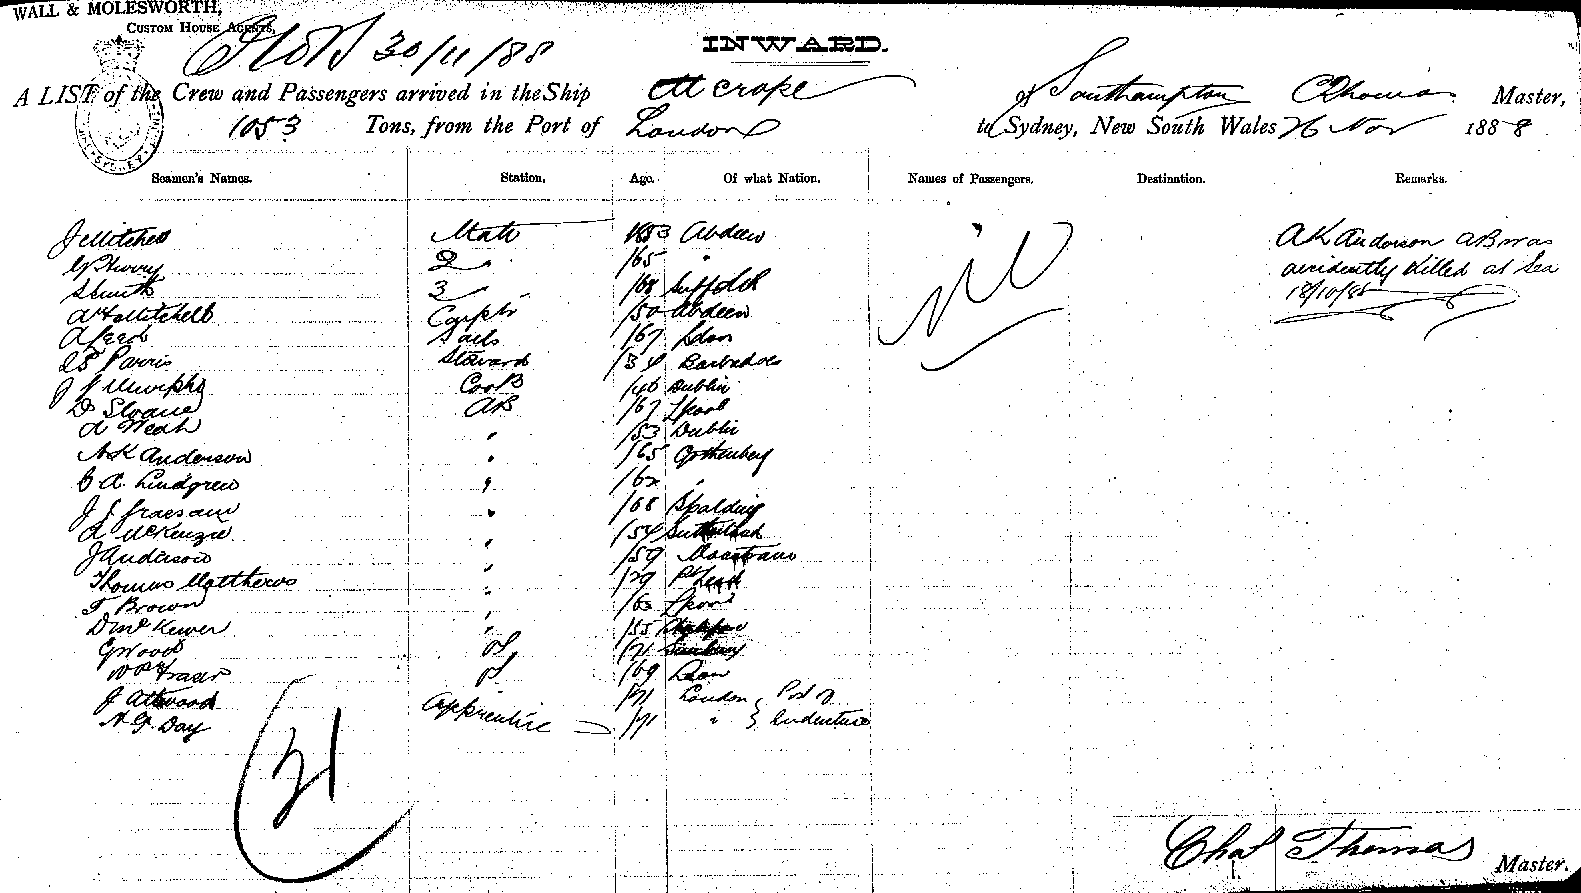 WALL & MOLESWORTH,
CUSTOM HOUSE AGENTS,
30/11/88
INWARD.
A LIST of the Crew and Passengers arrived in the Ship Merope of Southampton C Thomas Master,
1053 Tons, from the Port of London to Sydney, New South Wales 26 Nov 1888
Seamen's Names. Station, Age. Of what Nation, Names of Passengers, Destination. Remarks.
J Mitchell Mate 1853 Abdeen nil A K Anderson AB was
2 /65 " accidently Killed at Sea
S Smith 3 /68 Suffolk 18/10/88
A Mitchell Carptr /50 Abdeen
Sails /67 Ldon
Parris Steward /34 Barbadoes
J P Murphy Cook /46 Dublin
D Sloane AB /67 Lpool
" /53 Dublin
A K Anderson " /65 Gothenberg
C A. Lindgren " /62 "
" /68 Spalding
A McKenzie " /54 Sutherland
J Anderson " /59
Thomas Matthews " /29
T Brown " /63 Lpool
" /55
G Wood OS /71
Fraser OS /69 Ldon
J Attwood Apprentice /71 London } Port of
A G Day /71 " } Indenture
21
Chas Thomas Master.